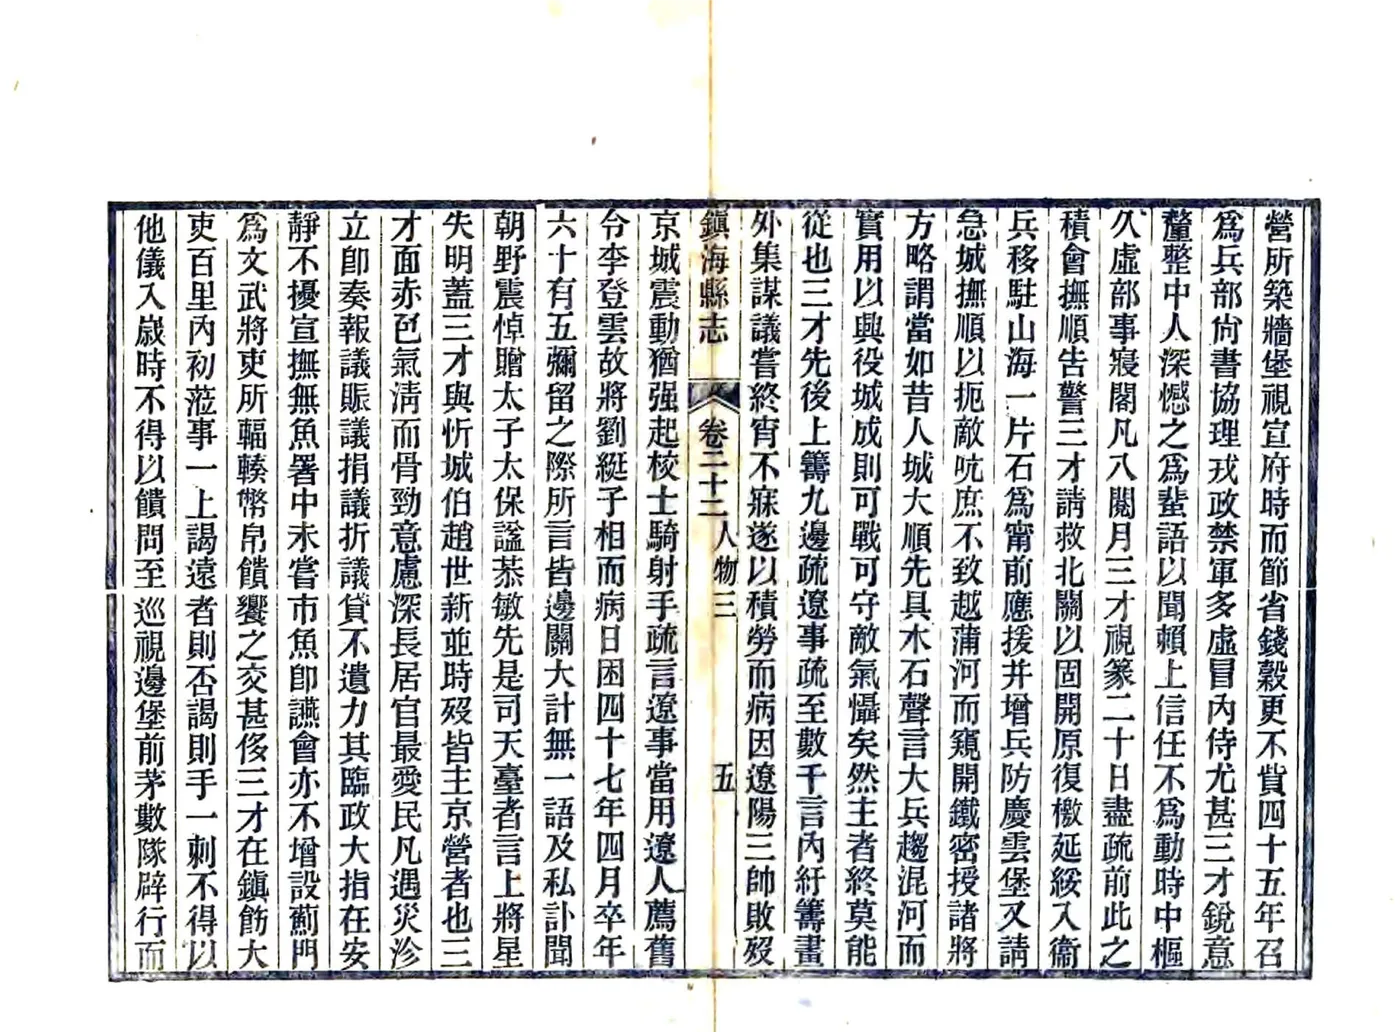 營所築牆堡視宣府時而節省錢穀更不貲四十五年召
爲兵部尙書協理戎政禁軍多虛冒內侍尤甚三才銳意
釐整中人深憾之爲蜚語以聞賴上信任不爲動時中樞
久虛部事寢閣凡八閱月三才視篆二十日盡疏前此之
積會撫順吿警三才請救北關以固開原復檄延綏入衞
兵移駐山海一片石爲甯前應援并增兵防慶雲堡又請
急城撫順以扼敵吭庶不致越蒲河而窺開鐵密授諸將
方略謂當如昔人城大順先具木石聲言大兵趨混河而
實用以興役城成則可戰可守敵氣懾矣然主者終莫能
從也三才先後上籌九邊疏遼事疏至數千言內紆籌畫
外集謀議嘗終宵不寐遂以積勞而病因遼陽三帥敗歿
鎭海縣志
卷二十二
人物三
五
京城震動猶强起校士騎射手疏言遼事當用遼人薦舊
令李登雲故將劉綎子相而病日困四十七年四月卒年
六十有五彌留之際所言皆邊關大計無一語及私訃聞
朝野震悼贈太子太保諡恭敏先是司天臺者言上將星
失明蓋三才與忻城伯趙世新並時歿皆主京營者也三
才面赤色氣淸而骨勁意慮深長居官最愛民凡遇災沴
立卽奏報議賑議捐議折議貸不遺力其臨政大指在安
靜不擾宣撫無魚署中未嘗市魚卽讌會亦不增設薊門
爲文武將吏所輻輳幣帛饋饗之交甚侈三才在鎭飭大
吏百里內初蒞事一上謁遠者則否謁則手一刺不得以
他儀入歲時不得以饋問至巡視邊堡前茅數隊辟行而